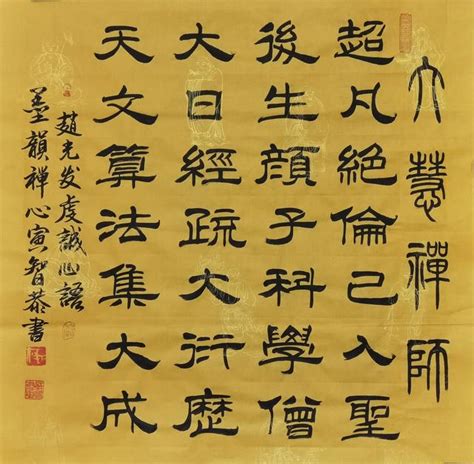 大慧禪師
超凡絕倫已入聖
後生顏子科學僧
大日經疏大衍歷
天文算法集大成
趙光发虔誠心語
墨韻禪心寅智恭書